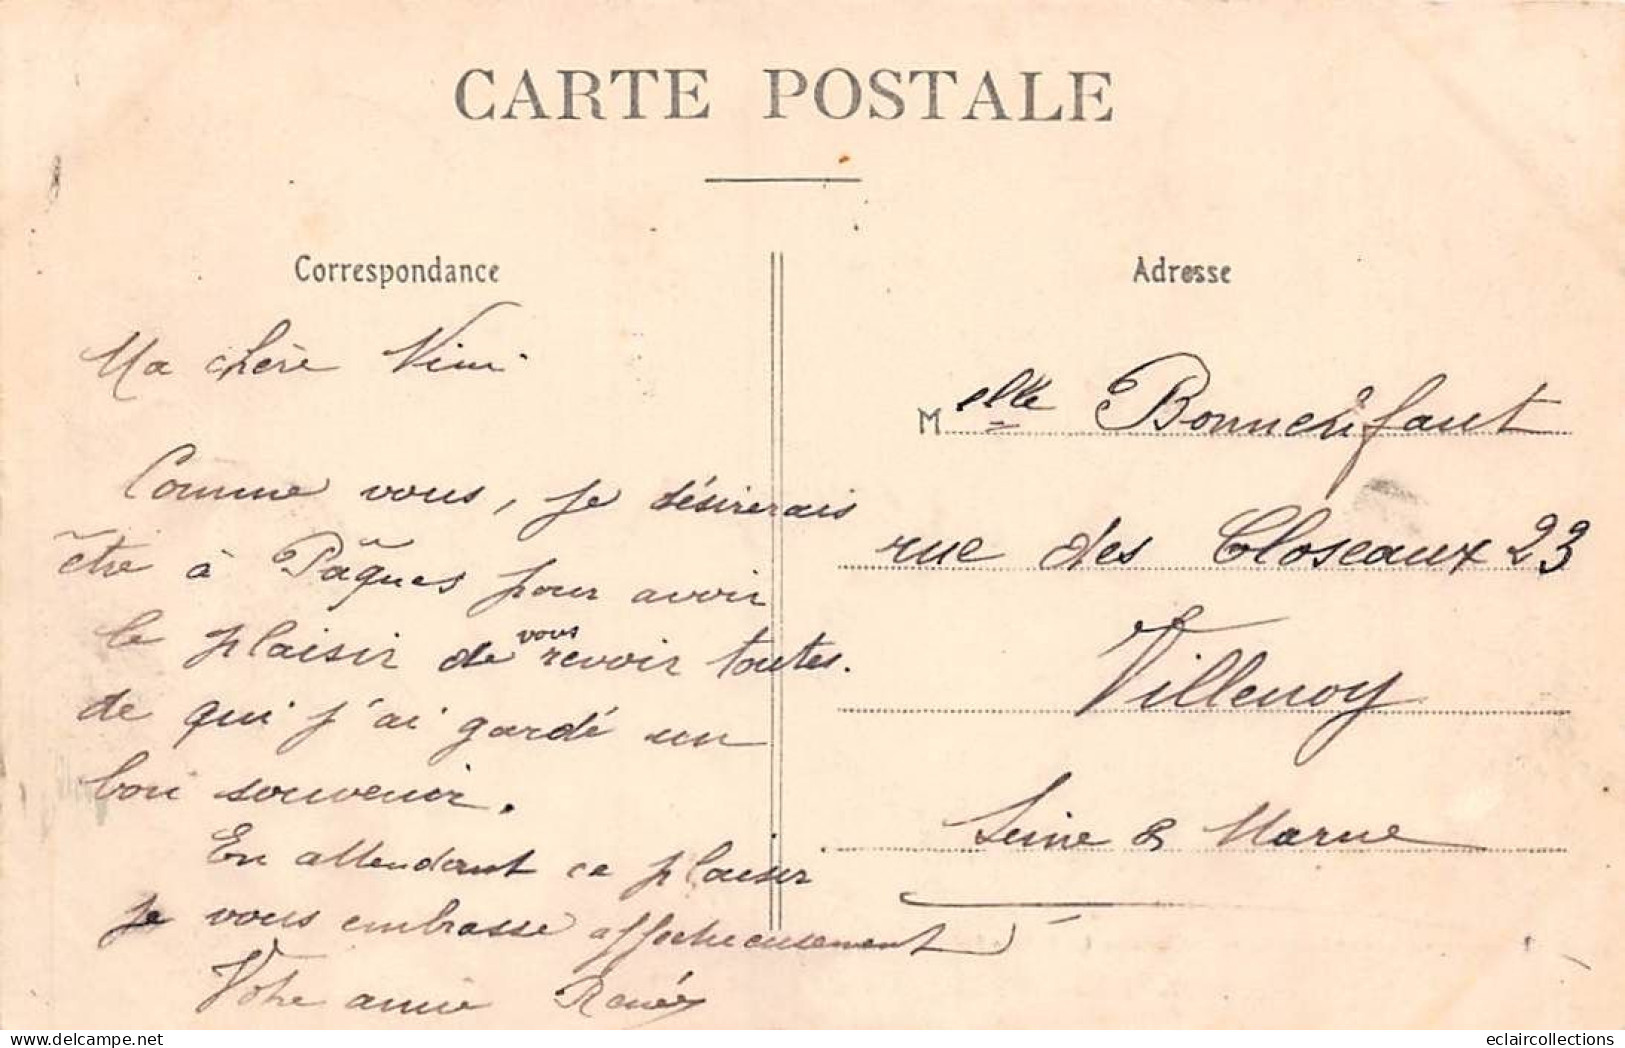 CARTE POSTALE
Correspondance
Ma chère Nini
Comme vous, je désirerais
être à Pâques pour avoir
le plaisir de vous revoir toutes.
de qui j'ai gardé un
bon souvenir.
En attendant ce plaisir
je vous embrasse affectueusement
Votre amie Renée
Adresse
Melle Bonnenfant
rue des Closeaux 23
Villenoy
Seine & Marne
delcampe.net
eclaircollections